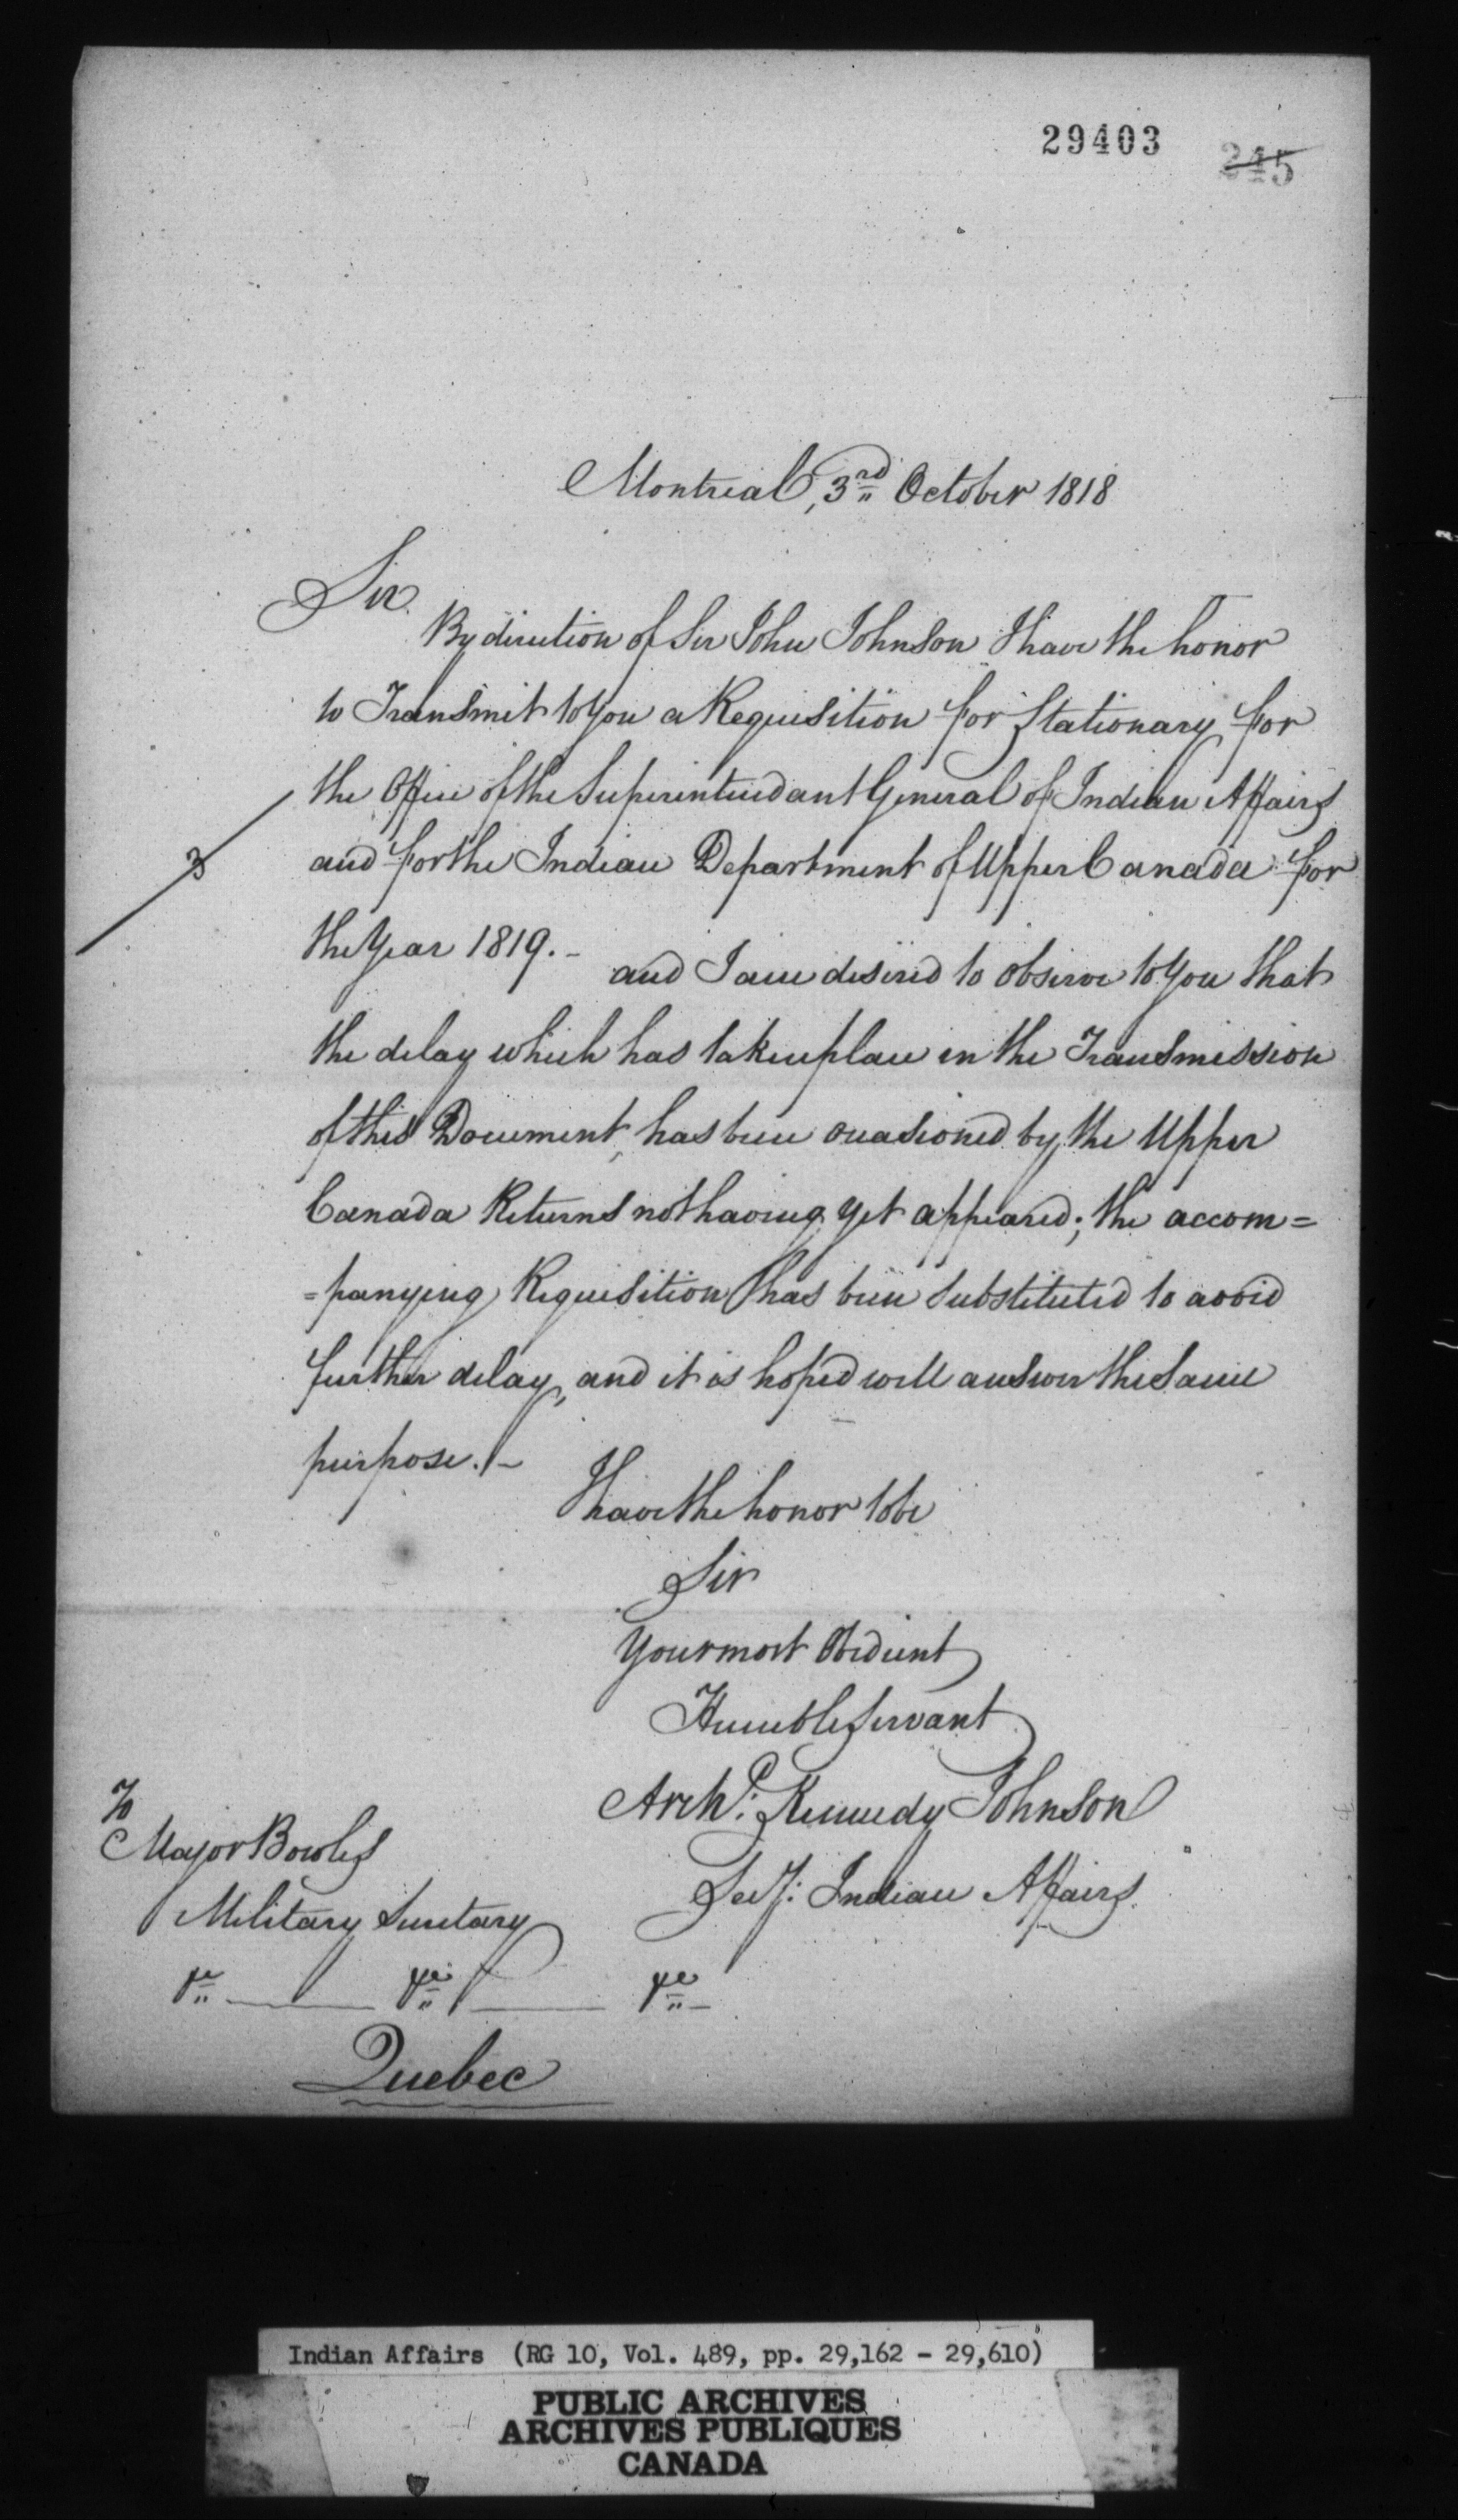 29403 245
Montreal, 3rd October 1818
Sir
By direction of Sir John Johnson I have the honor
to Transmit to You a Requisition for Stationary for
the Office of the Superintendant General of Indian Affairs
and for the Indian Department of Upper Canada for
the Year 1819.-
and I am desired to observe to You that
the delay which has taken place in the Transmission
of this Document, has been occasioned by the Upper
Canada Returns not having yet appeared; the accom=
=panying Requisition has been substituted to avoid
further delay, and it is hoped will answer the Same
purpose.-
I have the honor to be
Sir
Your most Obedient
Humble Servant
Archd: Kennedy Johnson
Secy: Indian Affairs
To
Major Bowles
Military Secretary
&c &c &c
Quebec
Indian Affairs (RG 10, Vol. 489, pp. 29,162 - 29,610)
PUBLIC ARCHIVES
ARCHIVES PUBLIQUES
CANADA